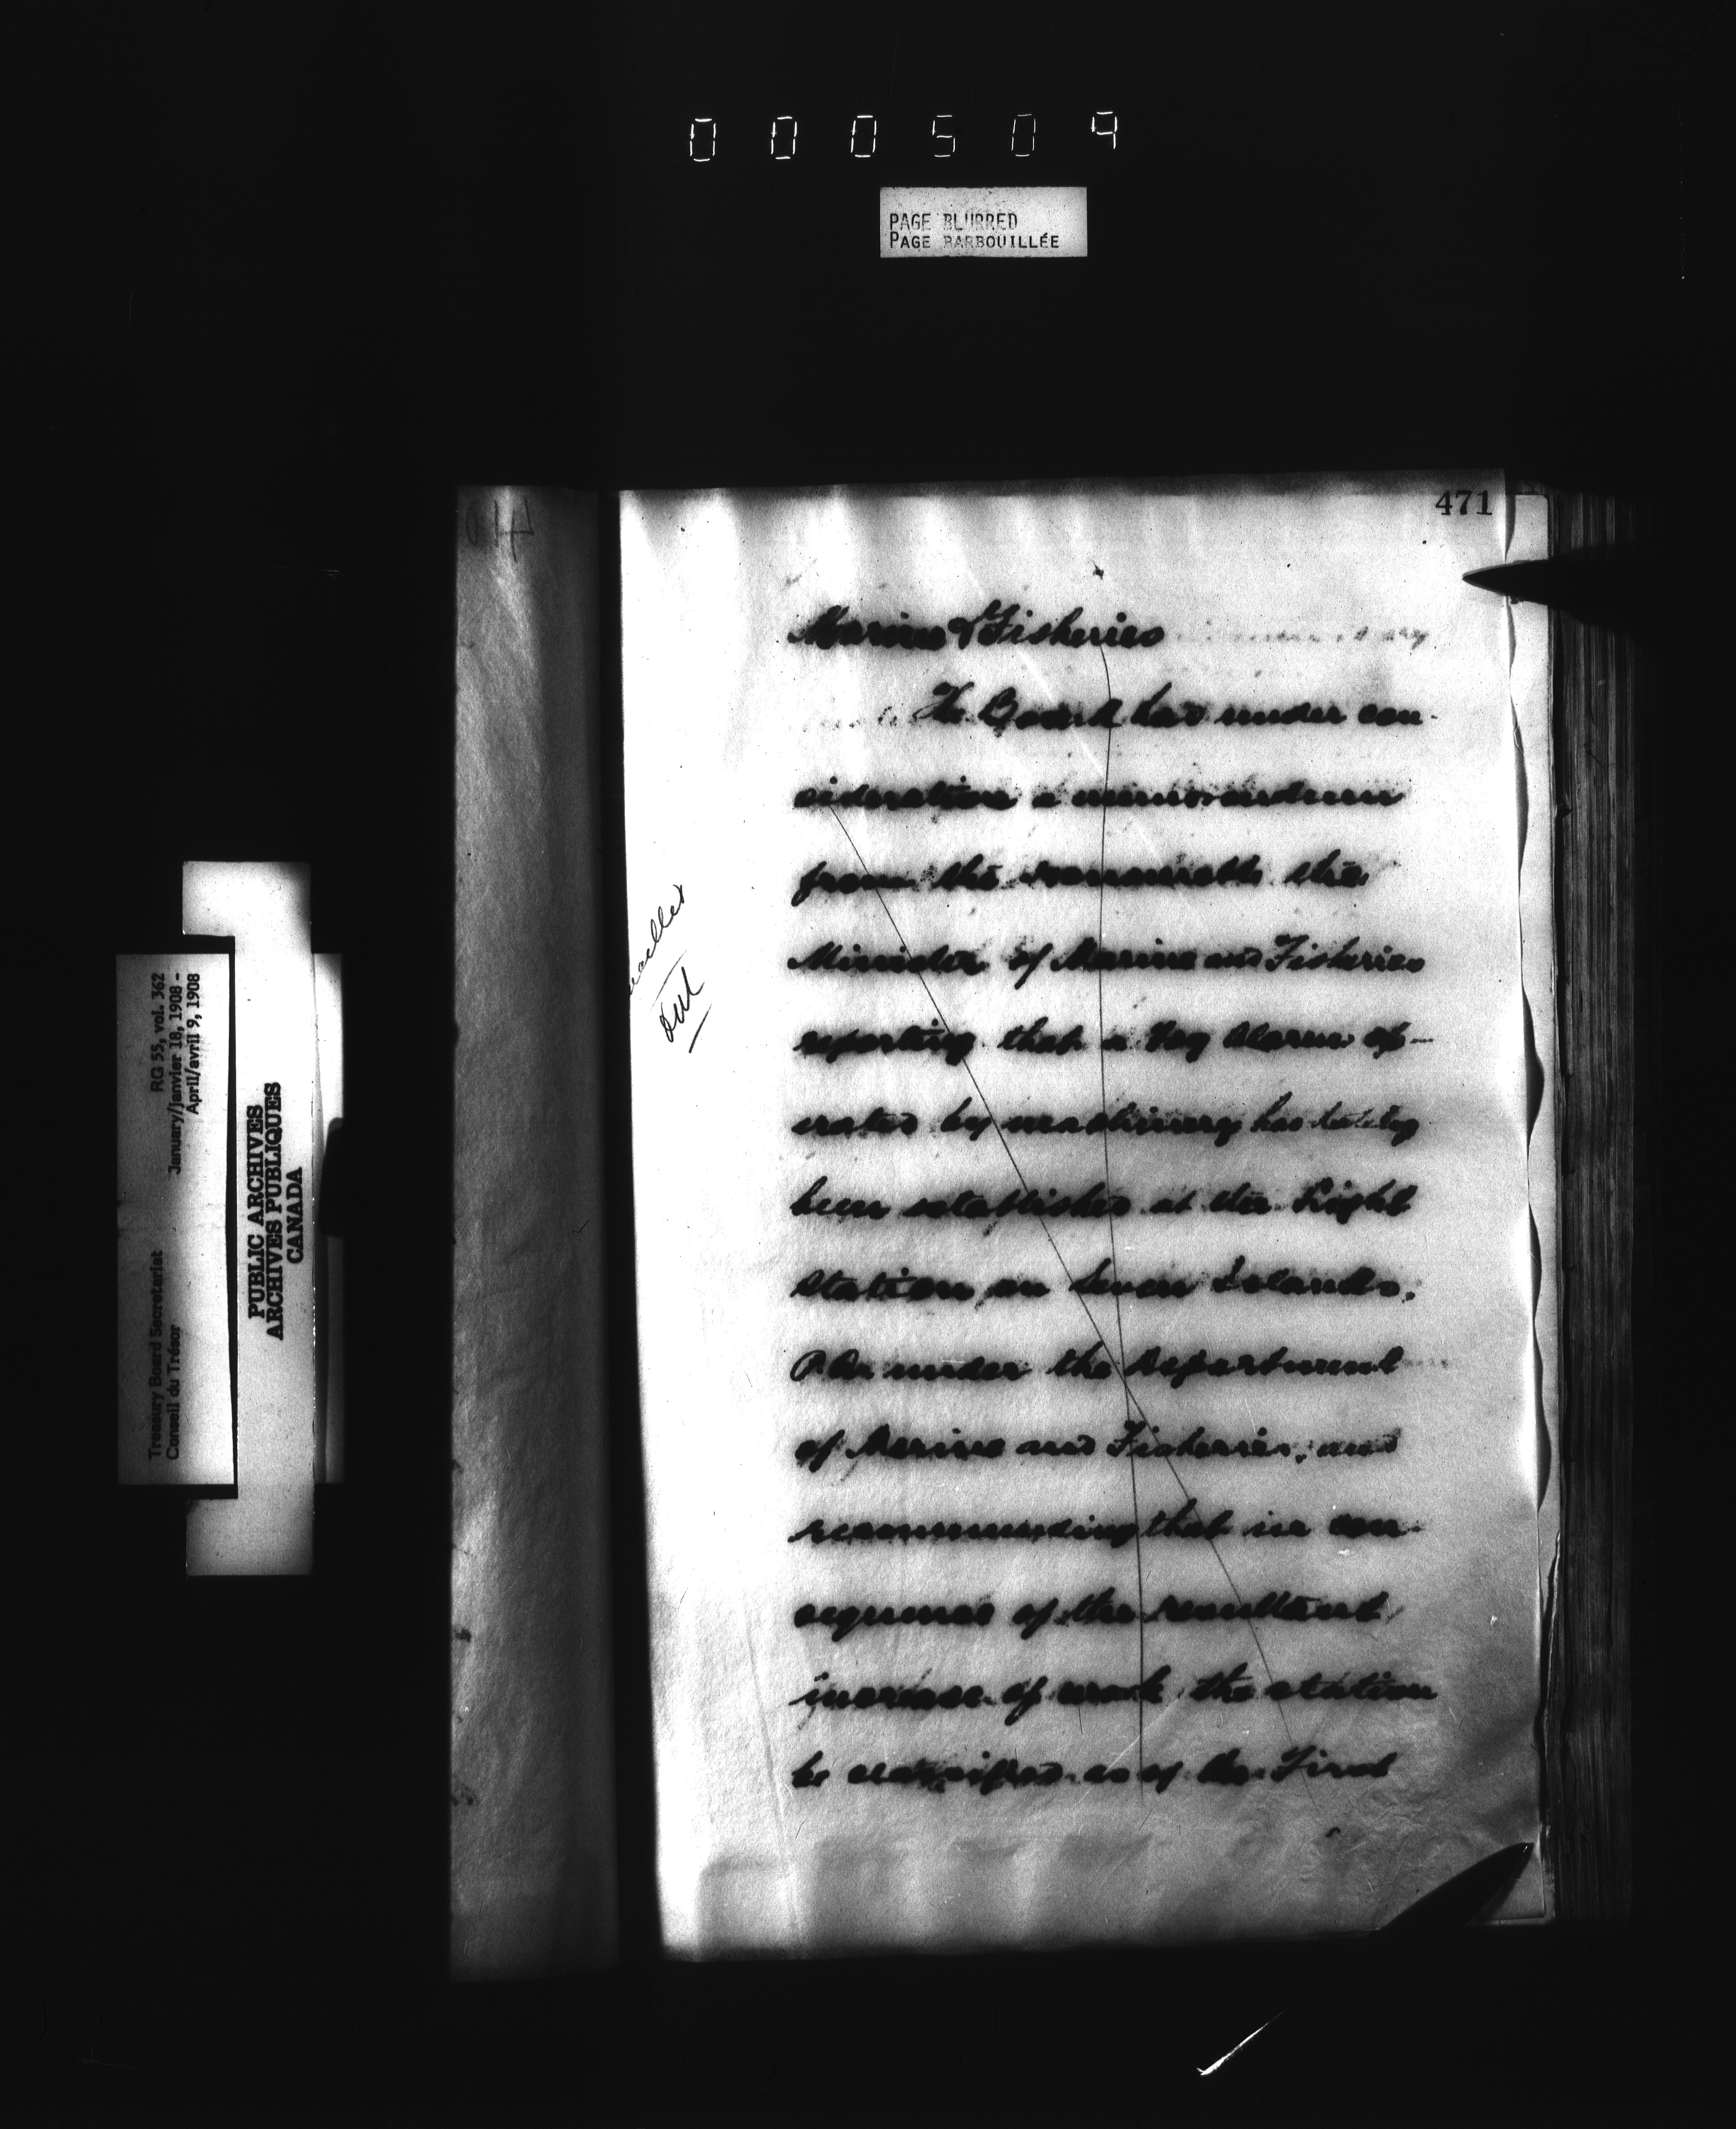 000504
PAGE BLURRED
PAGE BARBOUILLÉE
471
Marine & Fisheries
The Board had under con-
sideration a memorandum
from the Honourable the
Minister of Marine and Fisheries
reporting that a Fog Alarm op-
erated by machinery has lately
been established at the Light
Station on Seven Islands,
P.Q. under the Department
of Marine and Fisheries, and
recommending that in con-
sequence of the resultant
increase of work the station
be classified as of the First
out
RG 55, vol. 362
January/janvier 18, 1908 -
April/avril 9, 1908
Treasury Board Secretariat
Conseil du Trésor
PUBLIC ARCHIVES
ARCHIVES PUBLIQUES
CANADA